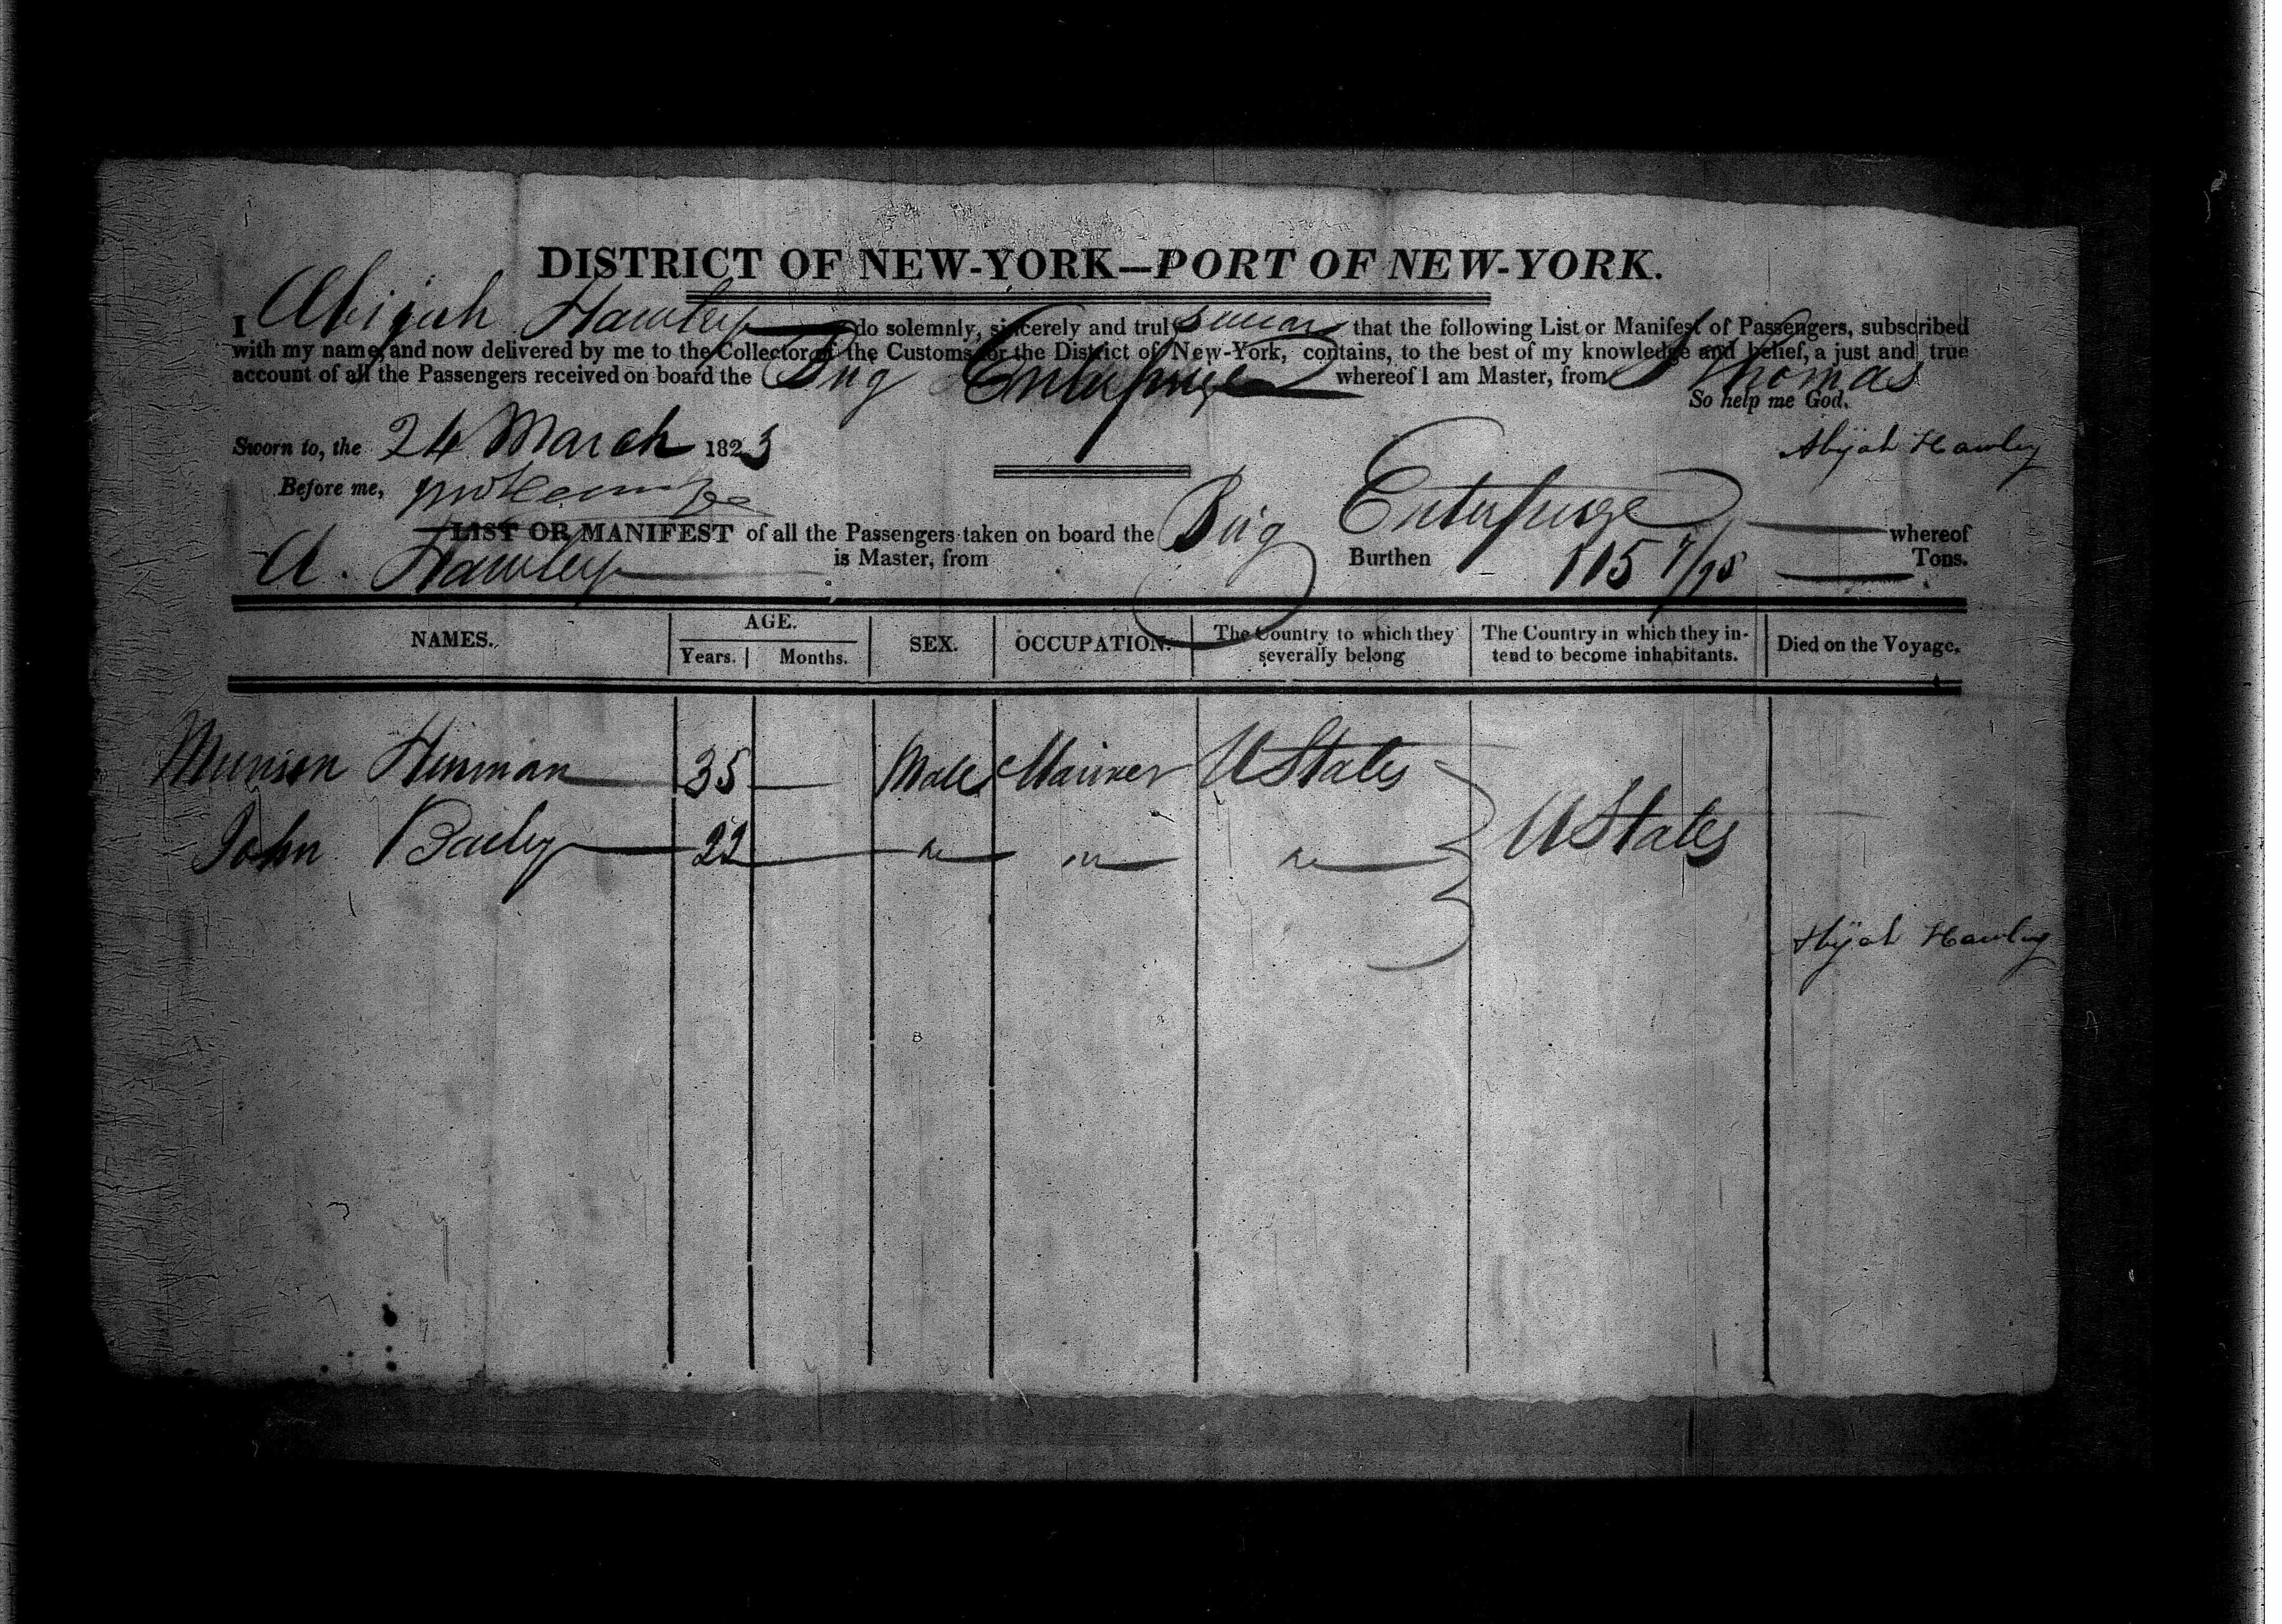 DISTRICT OF NEW-YORK—PORT OF NEW-YORK.
I Abijah Hawley do solemnly, sincerely and truly swear that the following List or Manifest of Passengers, subscribed
with my name, and now delivered by me to the Collector of the Customs for the District of New-York, contains, to the best of my knowledge and belief, a just and true
account of all the Passengers received on board the Brig Enterprize whereof I am Master, from St Thomas
So help me God.
Sworn to, the 24 March 1823
Abijah Hawley
Before me,
LIST OR MANIFEST of all the Passengers taken on board the Brig Enterprize whereof
A. Hawley is Master, from Burthen 115 7/95 Tons.
NAMES. AGE. SEX. OCCUPATION. The Country to which they severally belong The Country in which they intend to become inhabitants. Died on the Voyage.
Years. Months.
Munson Hinman 35 — Male Mariner U States
John Bailey 22 U States
Abijah Hawley